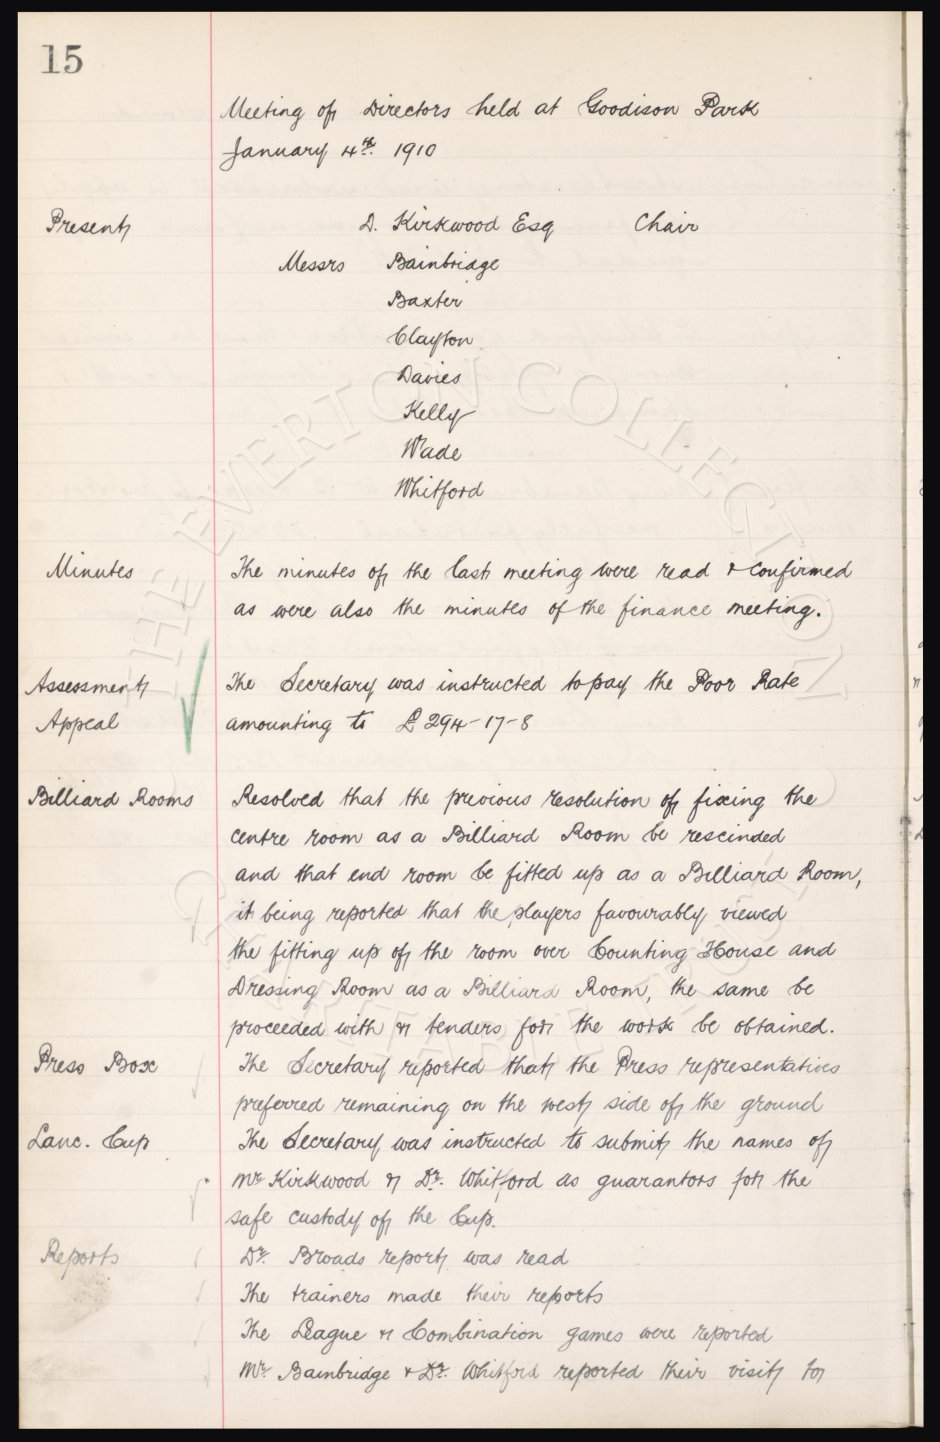 15
Meeting of Directors held at Goodison Park
January 4th. 1910
Present D. Kirkwood Esq Chair
Messrs Bainbridge
Baxter
Clayton
Davies
Kelly
Wade
Whitford
Minutes The minutes of the last meeting were read & confirmed
as were also the minutes of the finance meeting.
Assessment The Secretary was instructed to pay the Poor Rate
Appeal amounting to £294-17-8
Billiard Rooms Resolved that the previous resolution of fixing the
centre room as a Billiard Room be rescinded
and that end room be fitted up as a Billiard Room,
it being reported that the players favourably viewed
the fitting up of the room over Counting House and
Dressing Room as a Billiard Room, the same be
proceeded with & tenders for the work be obtained.
Press Box The Secretary reported that the Press representatives
preferred remaining on the west side of the ground
Lanc. Cup The Secretary was instructed to submit the names of
Mr Kirkwood & Dr. Whitford as guarantors for the
safe custody of the Cup.
Reports Dr. Broads report was read
The trainers made their reports
The League & Combination games were reported
Mr. Bainbridge & Dr. Whitford reported their visit to
THE EVERTON COLLECTION